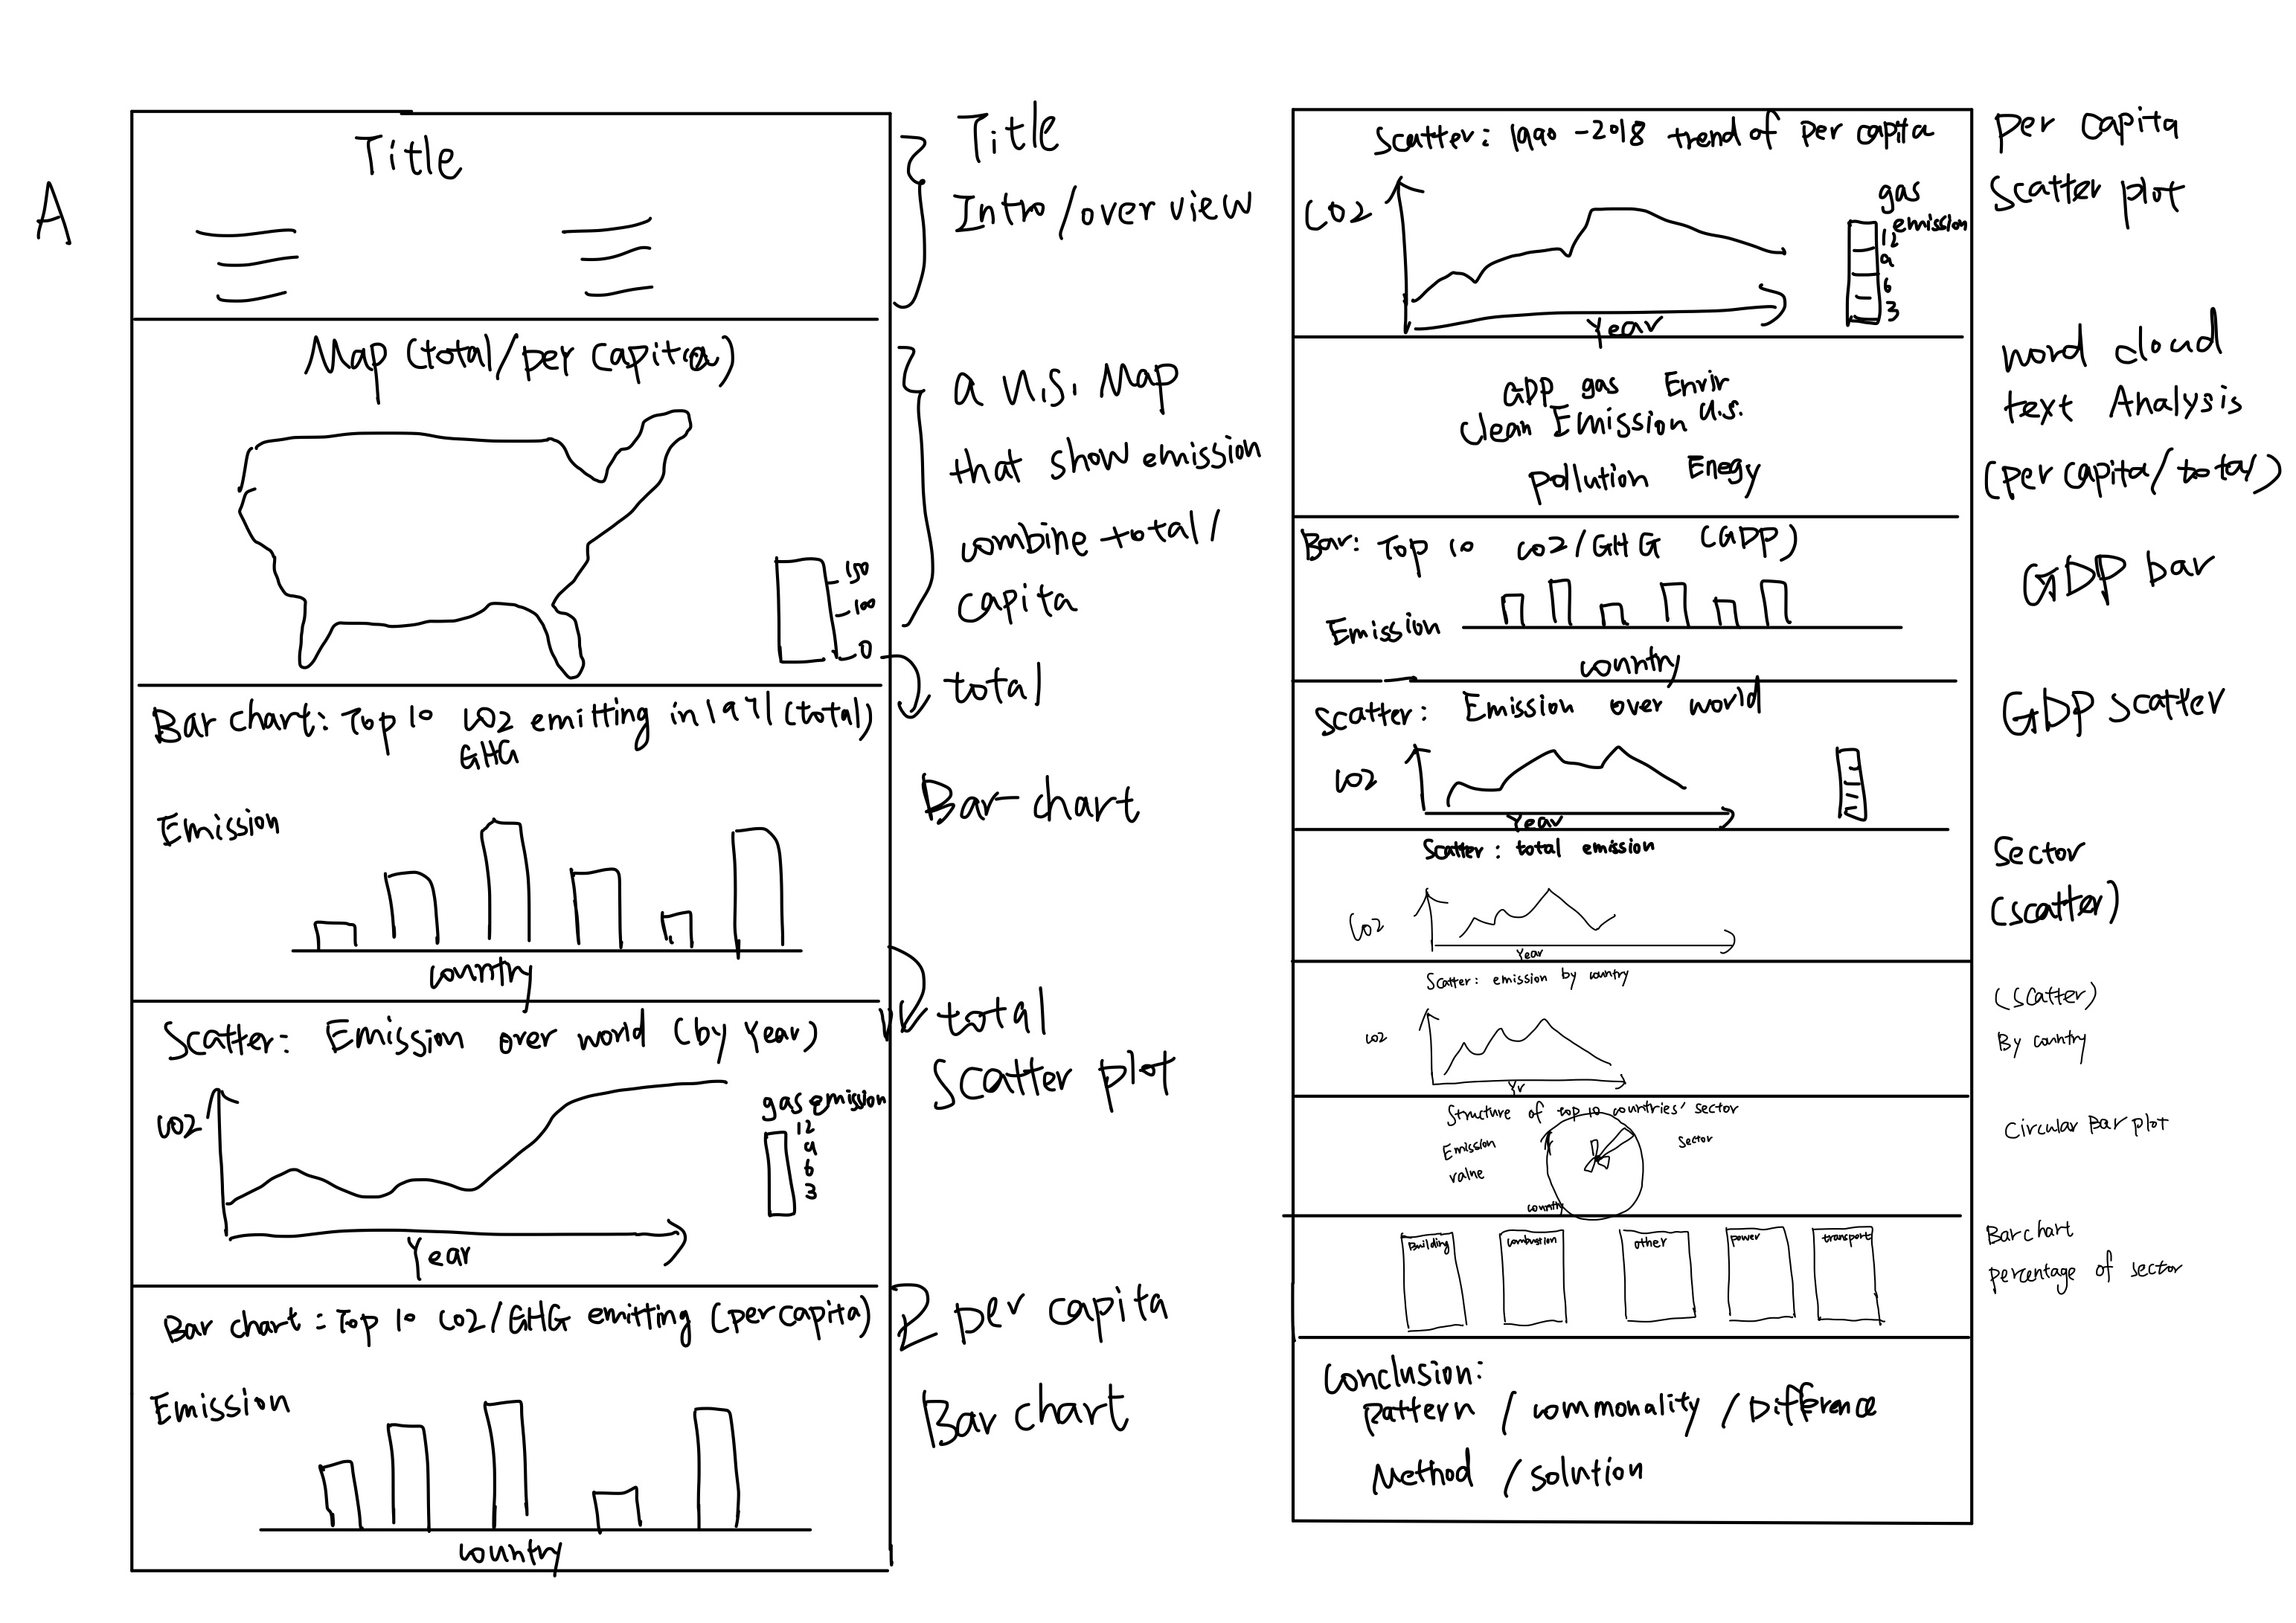 A
Title
Title
Intro/overview
Map (total/per capita)
150
100
0
a U.S. Map
that show emission
combine total/
capita
total
Bar chart: Top 10 CO2 emitting in 1971 (total)
GHG
Emission
country
Bar-chart
Scatter: Emission over world (by Year)
CO2
Year
gas emission
12
9
6
3
total
Scatter plot
Bar chart = Top 10 CO2/GHG emitting (per capita)
Emission
country
per capita
Bar chart
Scatter: 1990-2018 trend of per capita
CO2
Year
gas
emission
12
9
6
3
per capita
Scatter plot
GDP gas Envir
Clean Emission U.S.
pollution Enegy
word cloud
text Analysis
(per capita/total)
Bar: Top 10 CO2/GHG (GDP)
Emission
country
GDP bar
Scatter: Emission over world
CO2
Year
GDP scatter
Scatter: total emission
CO2
Year
Sector
(scatter)
Scatter: emission by country
CO2
Yr
(Scatter)
By country
Structure of top 10 countries' sector
Emission
value
Sector
country
Circular Bar plot
Building
combustion
other
power
transport
Bar chart
percentage of sector
Conclusion:
pattern / commonality / Difference
Method / solution